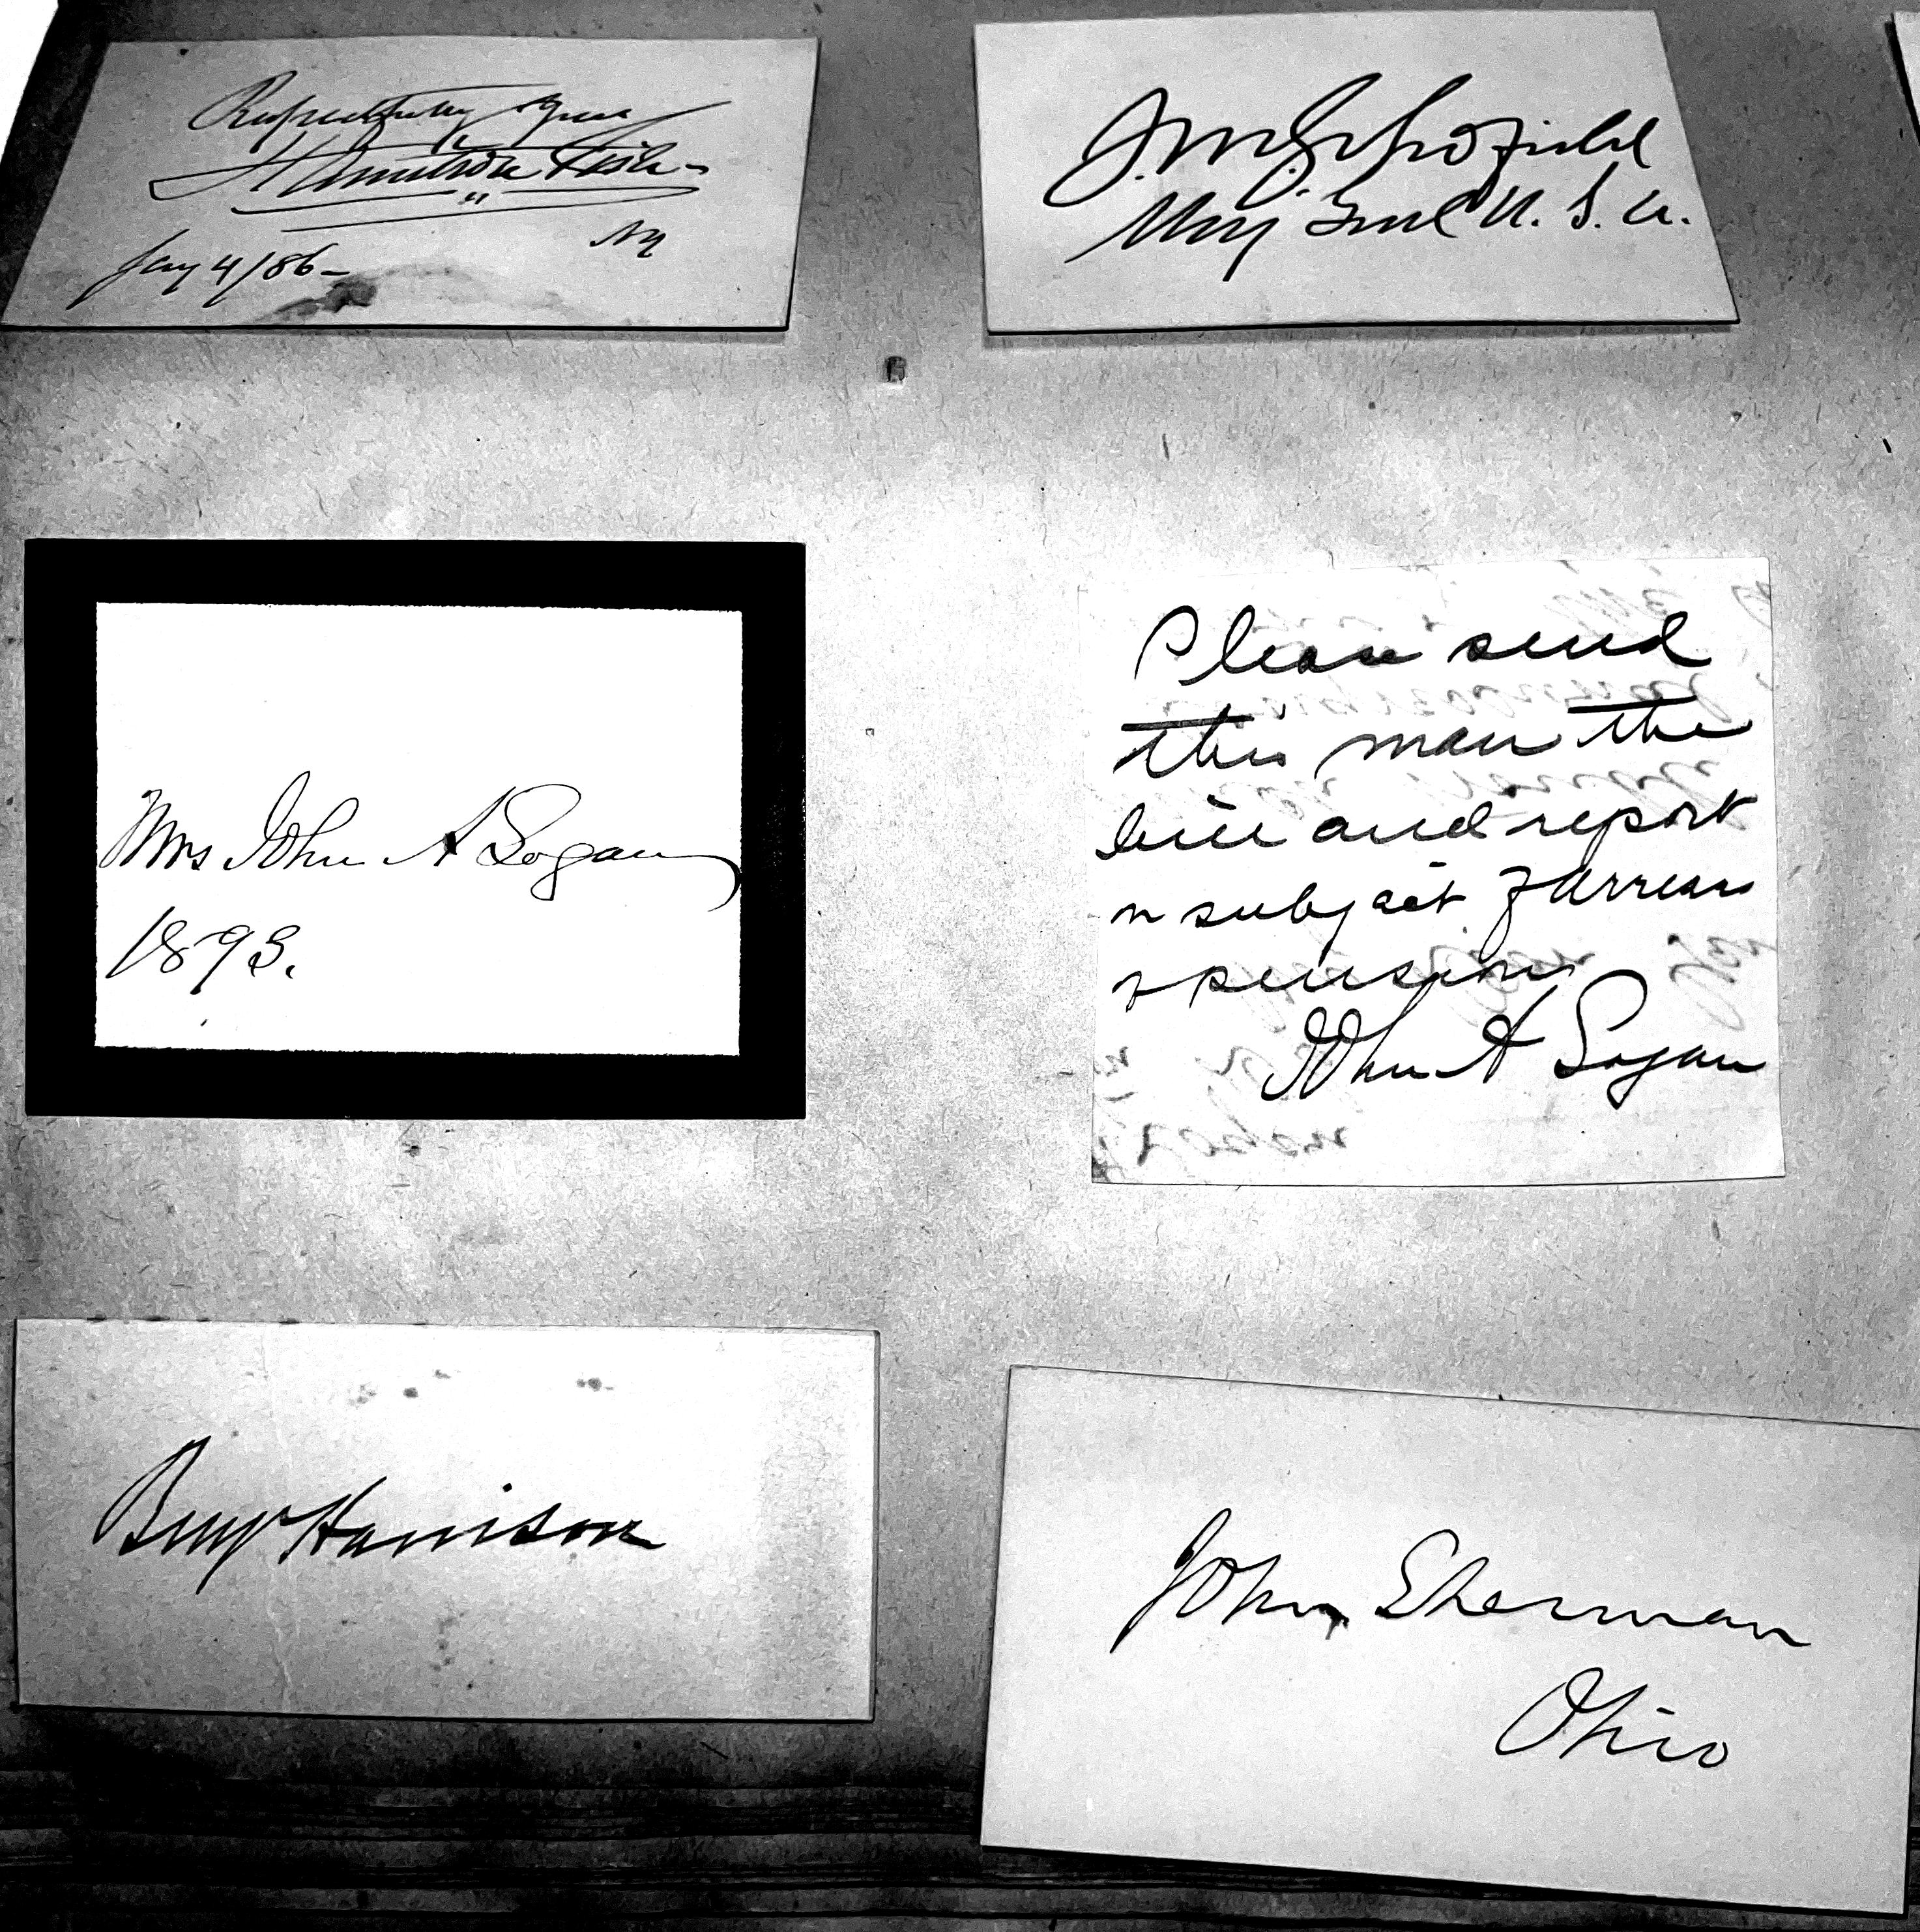 Respectfully Yours
Hamilton Fish
NY
Jany 4/86-
J. M. Schofield
Maj Genl U. S. A.
Mrs John A Logan
1893.
Please send
this man the
bill and report
on subject of Arrears
of pensions
John A Logan
Benj Harrison
John Sherman
Ohio